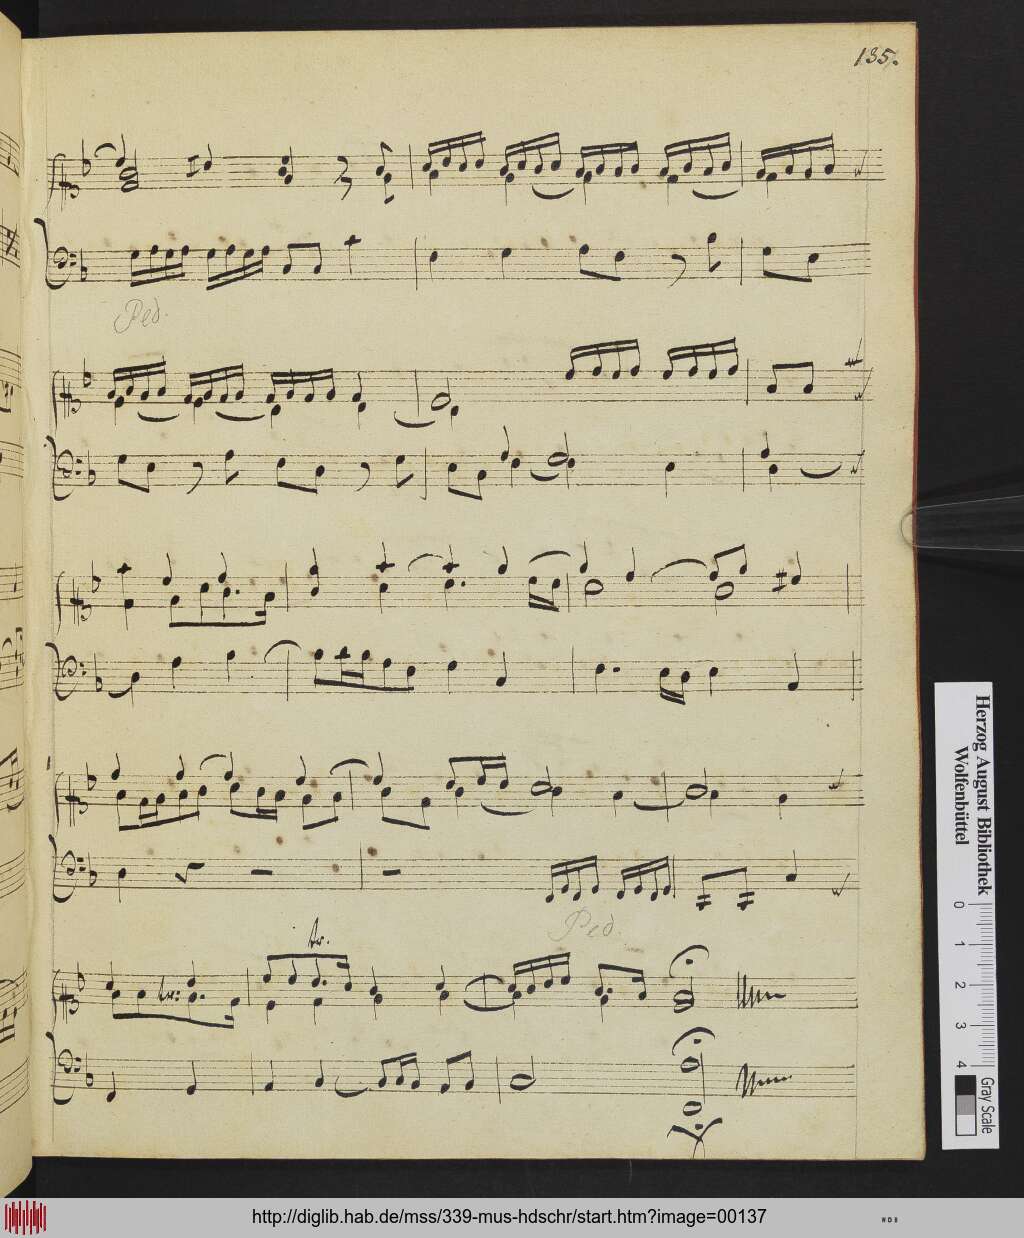 135.
Ped.
Ped.
tr.
tr:
Herzog August Bibliothek
Wolfenbüttel
0 1 2 3 4
Gray Scale
http://diglib.hab.de/mss/339-mus-hdschr/start.htm?image=00137